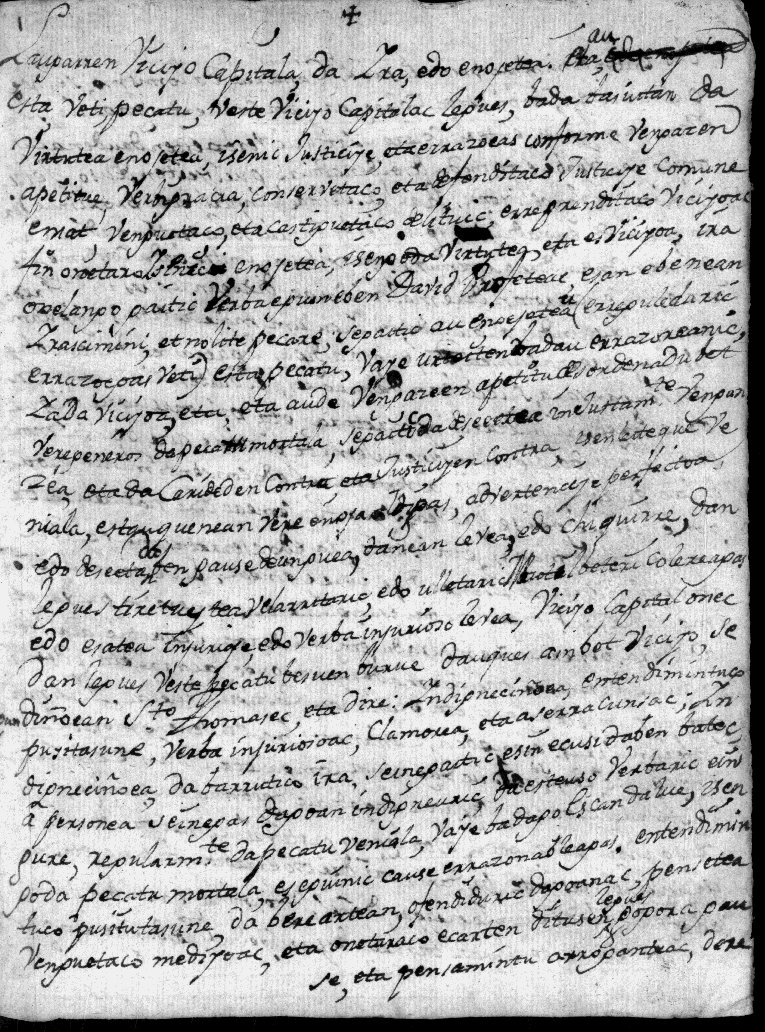 ✝
Laugarren Vicijo Capitala, da Ira, edo enojetea. au
esta veti pecatu, veste Vicijo Capitalac legues, bada bajustan da
Virtutea enojetea, isenic Justicije, eta errazoeas conforme venganzen
apetitue, conservetaco, eta defenditaco Justicije comune
emiat, venguetaco, eta castiguetaco delituic, erreprenditaco Vicijoac
fin onetaraco enojetea, iseno da Virtutea, eta es Vicijoa, ira
onelango gaitic verba eguin eben David Profeteac, esan ebenean
Irascimini, et nolite pecare, segaitic au enojetea (erregueladaric
errazoeas veti) esta pecatu, vaye urtetten badau errazoreanic,
Zada Vicijoa, eta, eta au da Venganzeen apetitu desordenadu bat
vere generos da pecatu mortala, segaitic da deseetea injustamte vengan
zea, eta da Carideden Contra, eta Justicijen Contra, isen leteque ve
niala, estauquenean vere enojas advertencije perfectoa,
edo deseetaden gause deungea, danean levea, edo chiquirre, dan
legues tiretuestea velarritaric, edo ulletaric coleraagas
edo esatea Injurije, edo verba injurioso levea, Vicijo Capitalonec
dan legues veste pecatu besuen burue dauques ainbat Vicijo, se
dinoean Sto Thomasec, eta dire: Indignecinoea, entendimintuco
pusitasune, verba injuriosoac, Clamorea, eta aserracunsac; In
dignecinoea, da barrutico ira, seinegaitic esin ecusi daben batec
a personea seinegas dagoan indignauric, da estauso verbaric ein
gure, regularmte da pecatu veniala, vaye badago Escandalue, isen
goda pecatu mortala, eseguinic cause errazonableagas. entendimin
tuco pusitutasune, da bere artean, ofendiduric dagoanac, pensetea
venguetaco medijoac, eta onetaraco ecarten dituse legues gogora gau
se, eta pensamintu arroganteac, dere